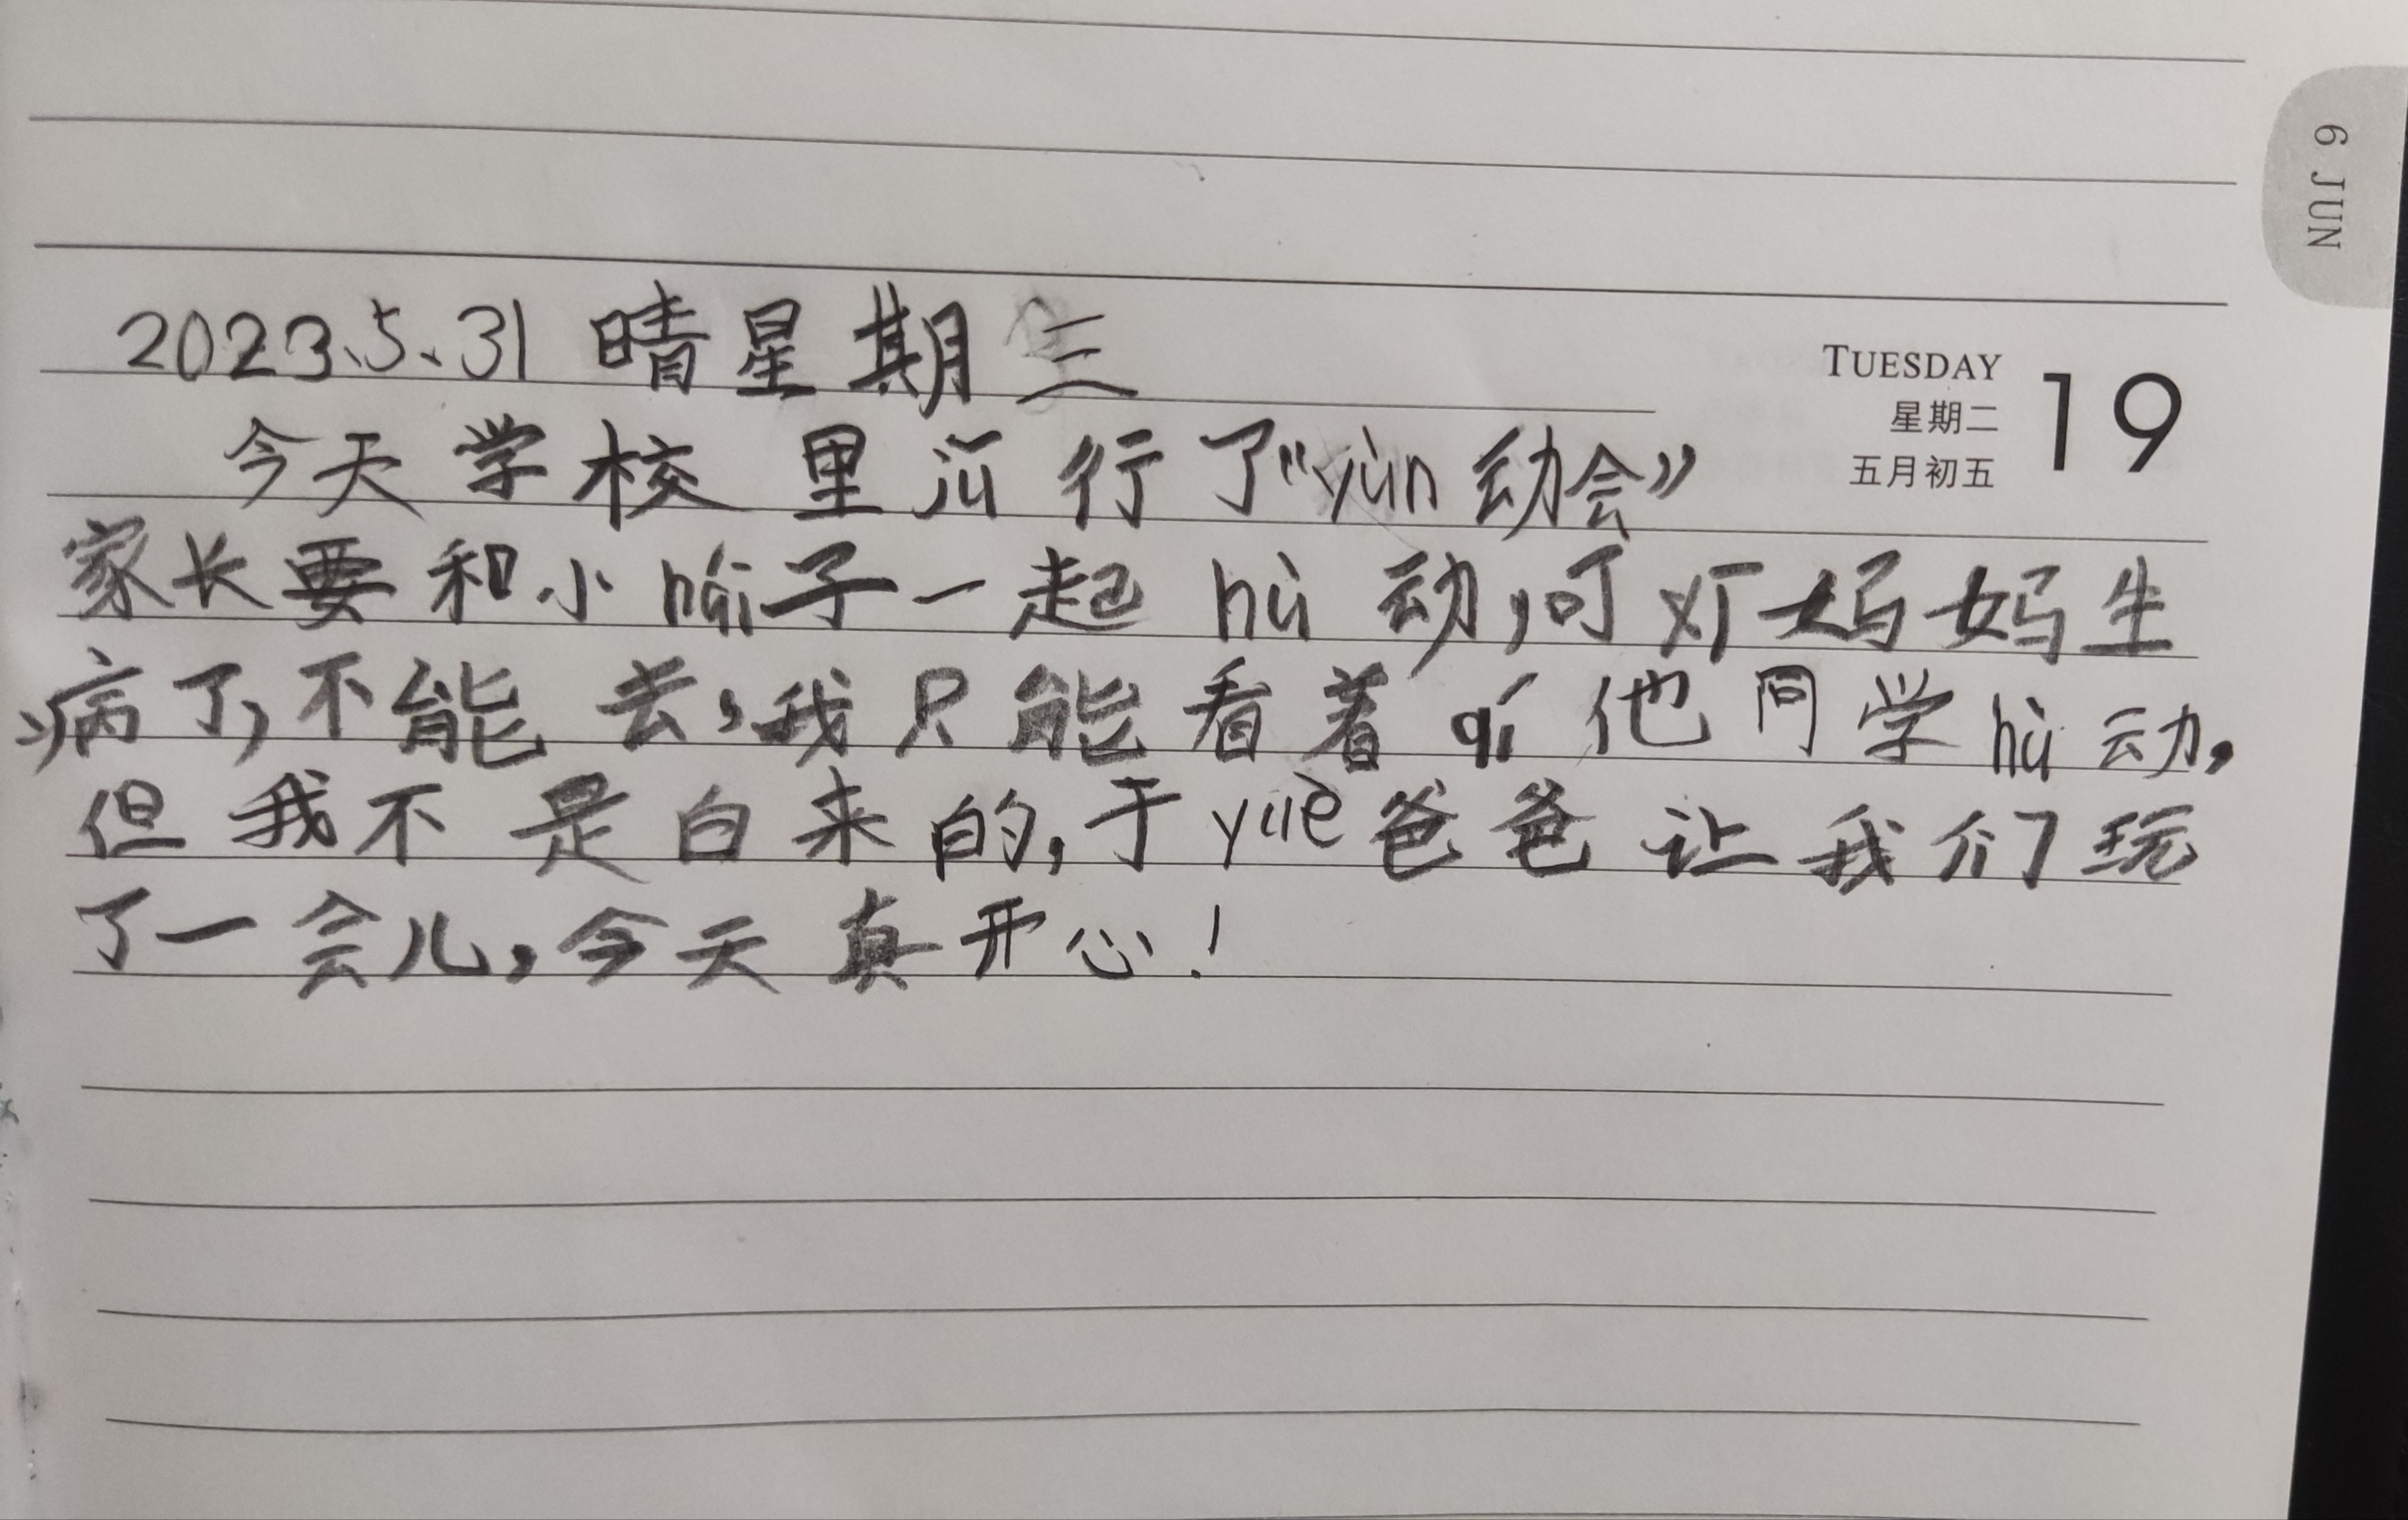 6 JUN
2023.5.31 晴星期三
TUESDAY
星期二
五月初五
19
今天学校里jǔ行了“yùn动会”
家长要和小hái子一起hù动,可xī妈妈生
病了,不能去,我只能看着qí他同学hù动,
但我不是白来的,于yuè爸爸让我们玩
了一会儿,今天真开心!